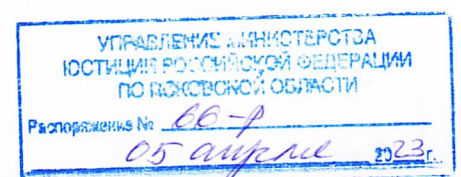 УПРАВЛЕНИЕ МИНИСТЕРСТВА
ЮСТИЦИИ РОССИЙСКОЙ ФЕДЕРАЦИИ
ПО ПСКОВСКОЙ ОБЛАСТИ
Распоряжение № 66-р
05 апреля 2023 г.